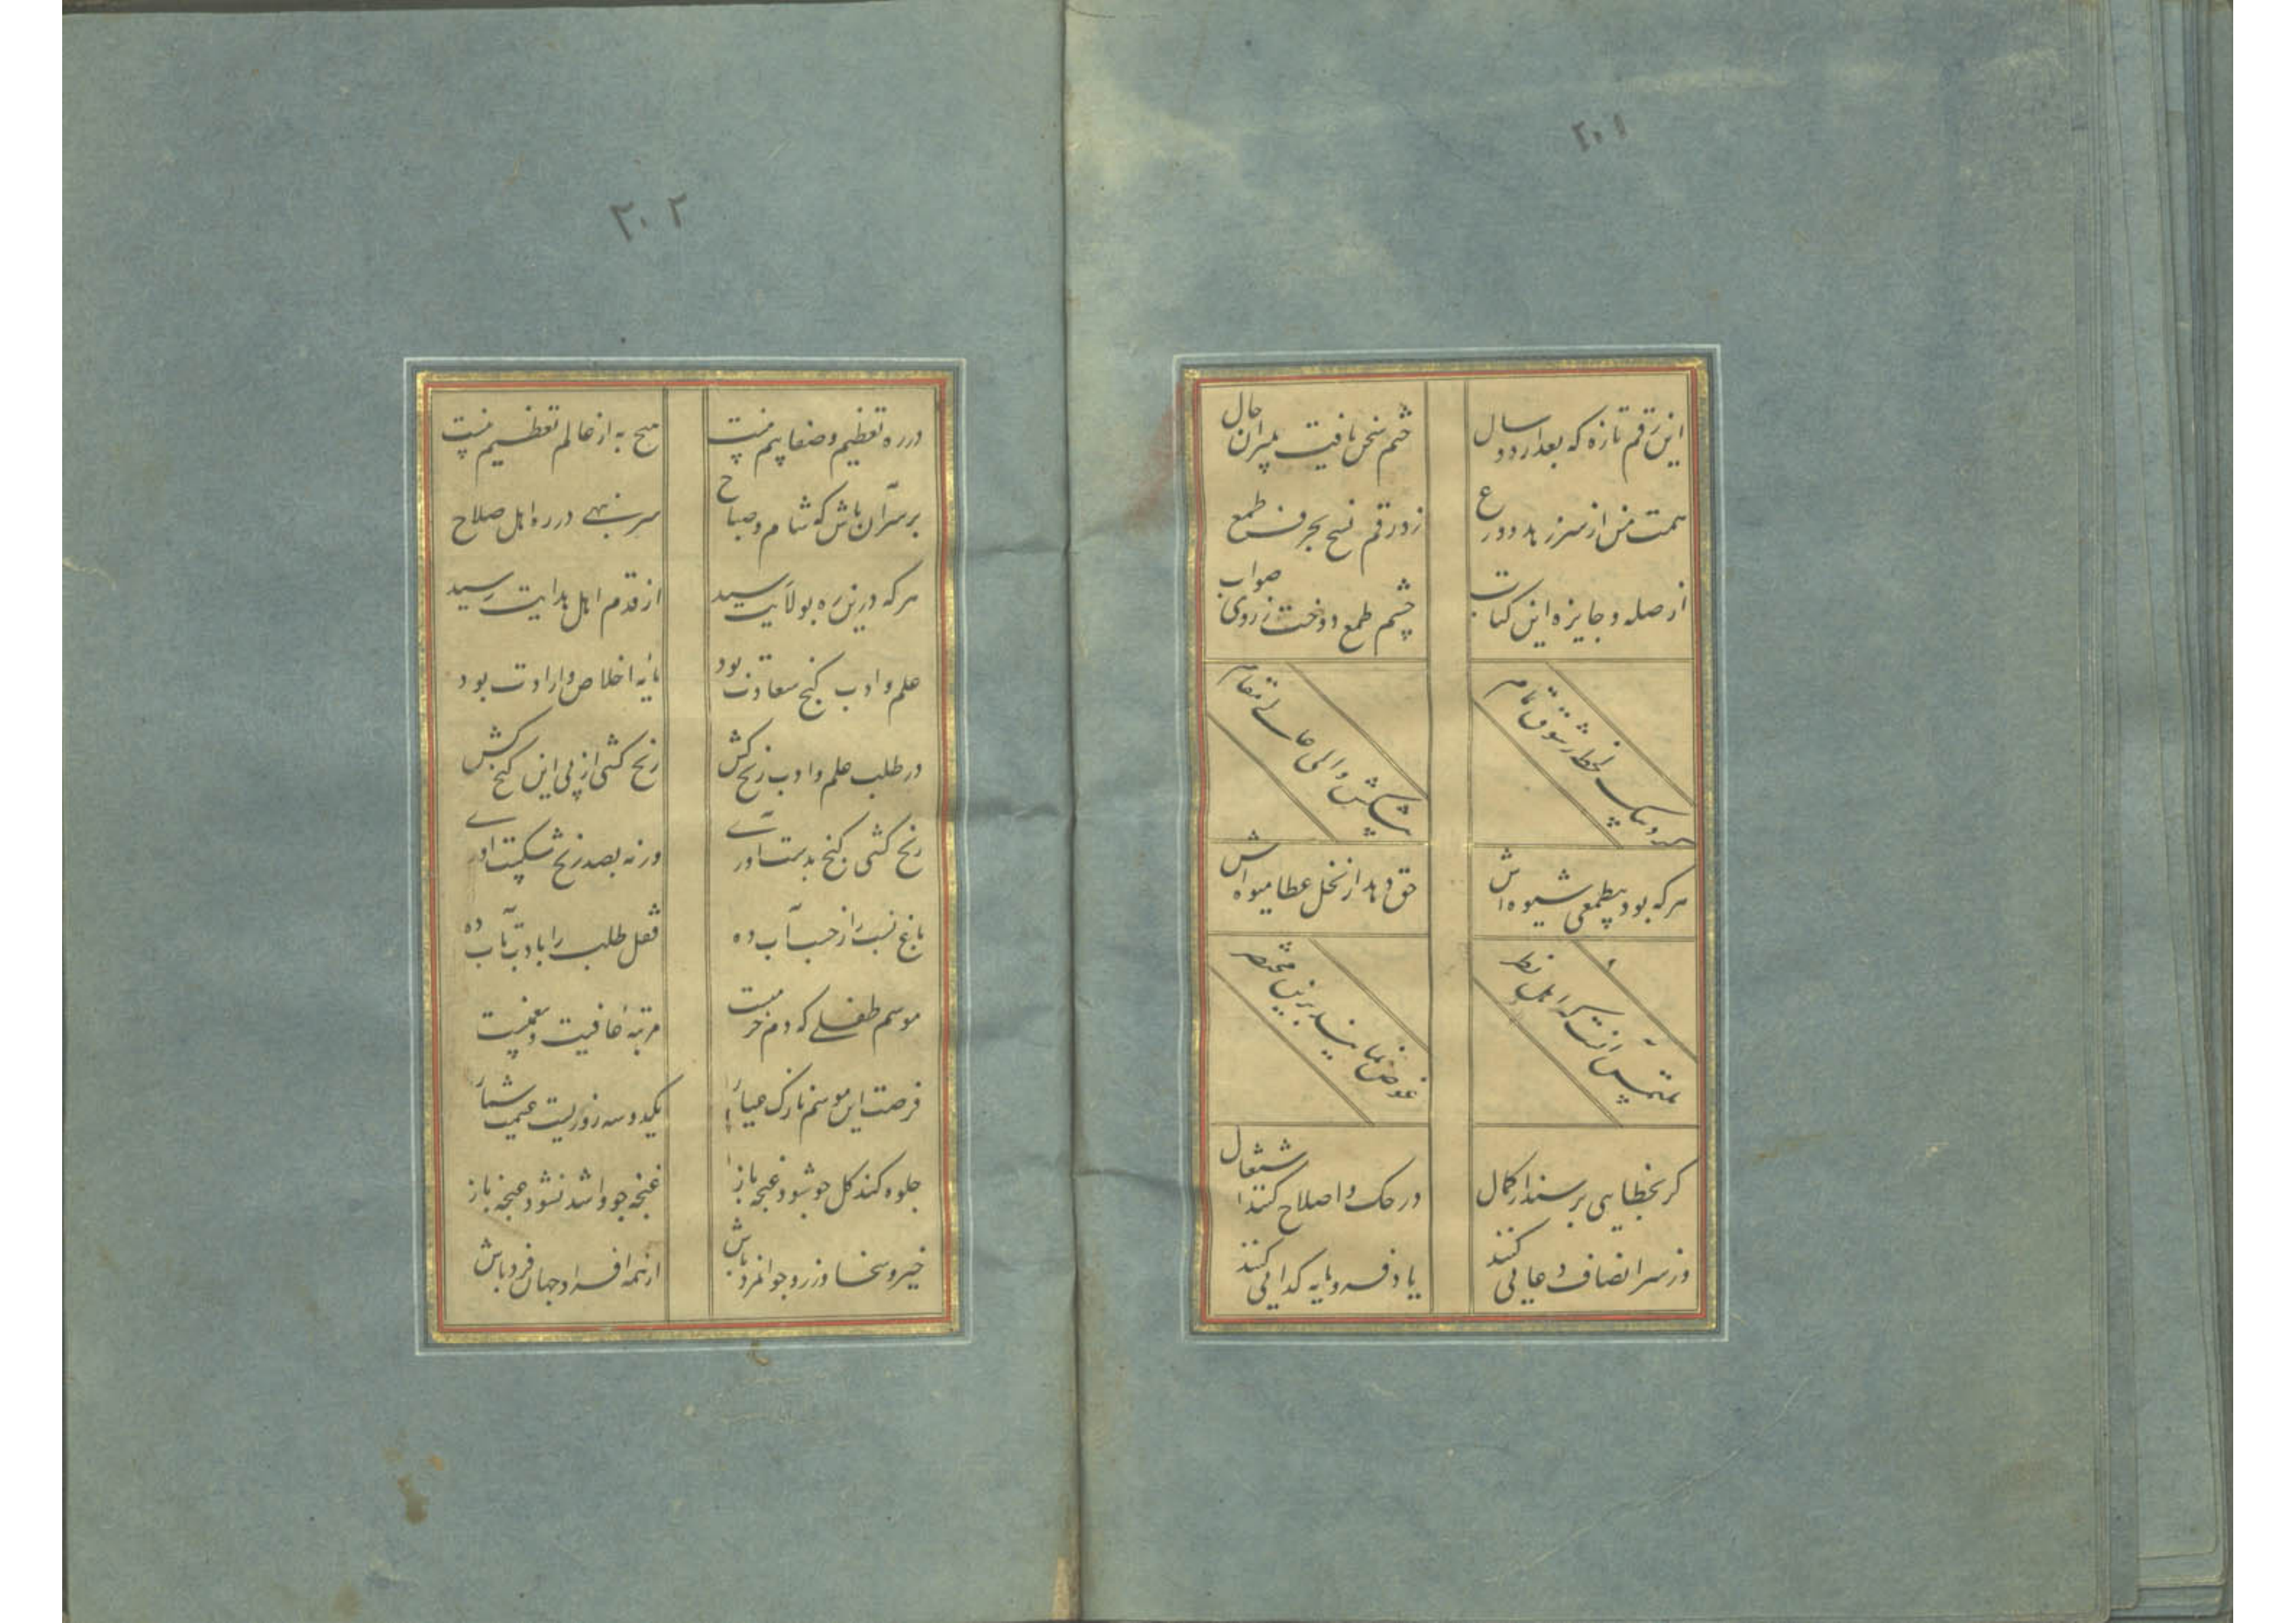 ۲۰۱
این رقم تازه که بعد از دو سال
ختم سخن یافت بدین حال
همت من از سر زهد و ورع
زد رقم نسخ بحرف طمع
از صله و جایزه این کتاب
چشم طمع دوخت ز روی صواب
بخط شوق تمام
پیشکش والی عالی مقام
هر که بود بیطمعی شیوه اش
حق دهد از نخل عطا میوه اش
ملتمس آنست که اهل نظر
غوص نمایند برین مختصر
گر بخطایی برسند از کمال
در حک و اصلاح کنند اشتغال
وز سر انصاف دعایی کنند
یاد فرومایه گدایی کنند
۲۰۲
در ره تعظیم و صفا بیم نیست
هیچ به از عالم تعظیم نیست
بر سر آن باش که شام و صباح
سر بنهی در ره اهل صلاح
هر که درین ره بولایت رسید
از قدم اهل هدایت رسید
علم و ادب گنج سعادت بود
مایه اخلاص و ارادت بود
در طلب علم و ادب رنج کش
رنج کشی از پی این گنج کش
رنج کشی گنج بدست آوری
ورنه بصد رنج شکست آوری
باغ نسب را ز حسب آب ده
قفل طلب را بادب تاب ده
موسم طفلی که دم خرمیست
مرتبه عافیت و بیغمیست
فرصت این موسم نازک عیار
یکدو سه روزیست غنیمت شمار
جلوه کند گل چو شود غنچه باز
غنچه چو وا شد نشود غنچه باز
خیر و سخا ورز و جوانمرد باش
از همه افراد جهان فرد باش